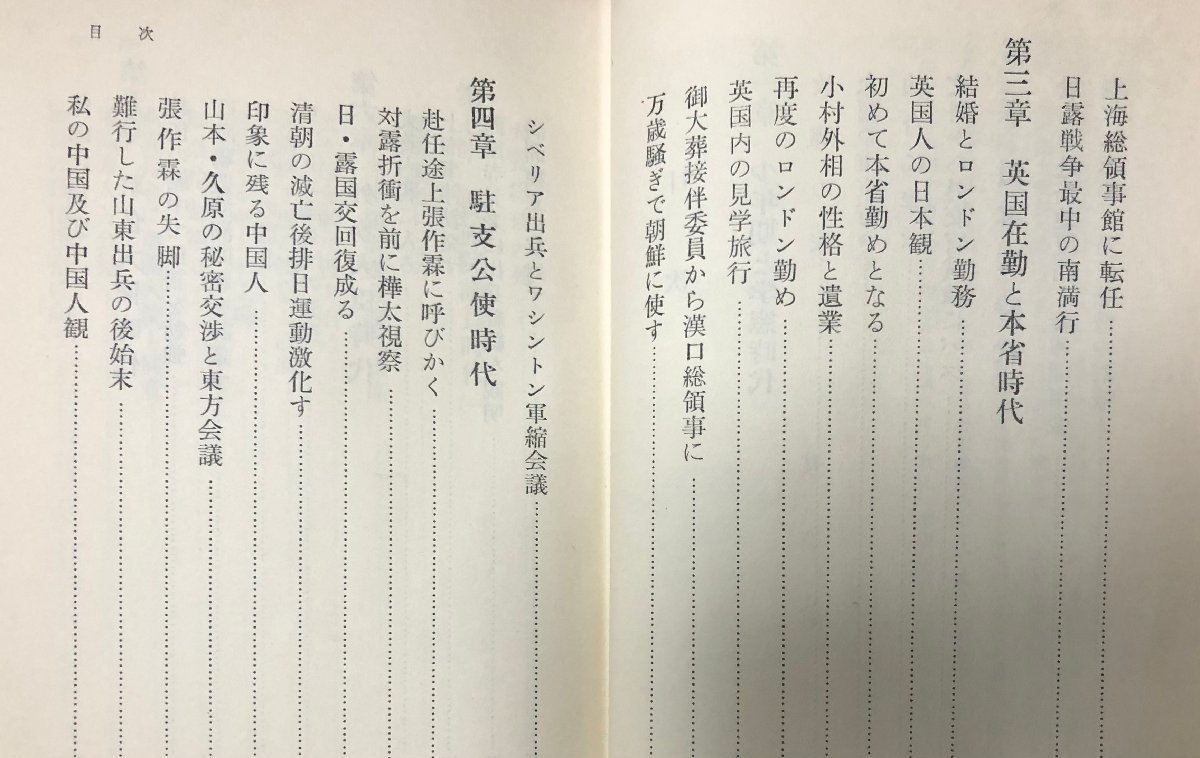 上海総領事館に転任
日露戦争最中の南満行
第三章 英国在勤と本省時代
結婚とロンドン勤務
英国人の日本観
初めて本省勤めとなる
小村外相の性格と遺業
再度のロンドン勤め
英国内の見学旅行
御大葬接伴委員から漢口総領事に
万歳騒ぎで朝鮮に使す
目次
シベリア出兵とワシントン軍縮会議
第四章 駐支公使時代
赴任途上張作霖に呼びかく
対露折衝を前に樺太視察
日・露国交回復成る
清朝の滅亡後排日運動激化す
印象に残る中国人
山本・久原の秘密交渉と東方会議
張作霖の失脚
難行した山東出兵の後始末
私の中国及び中国人観